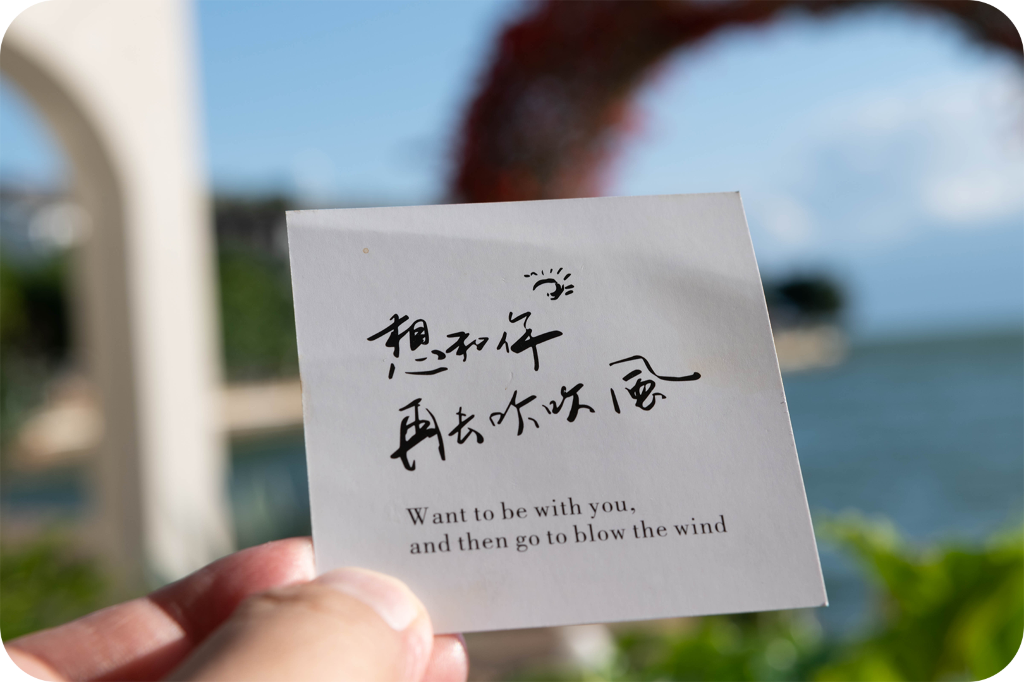 想和你
再去吹吹風
Want to be with you,
and then go to blow the wind